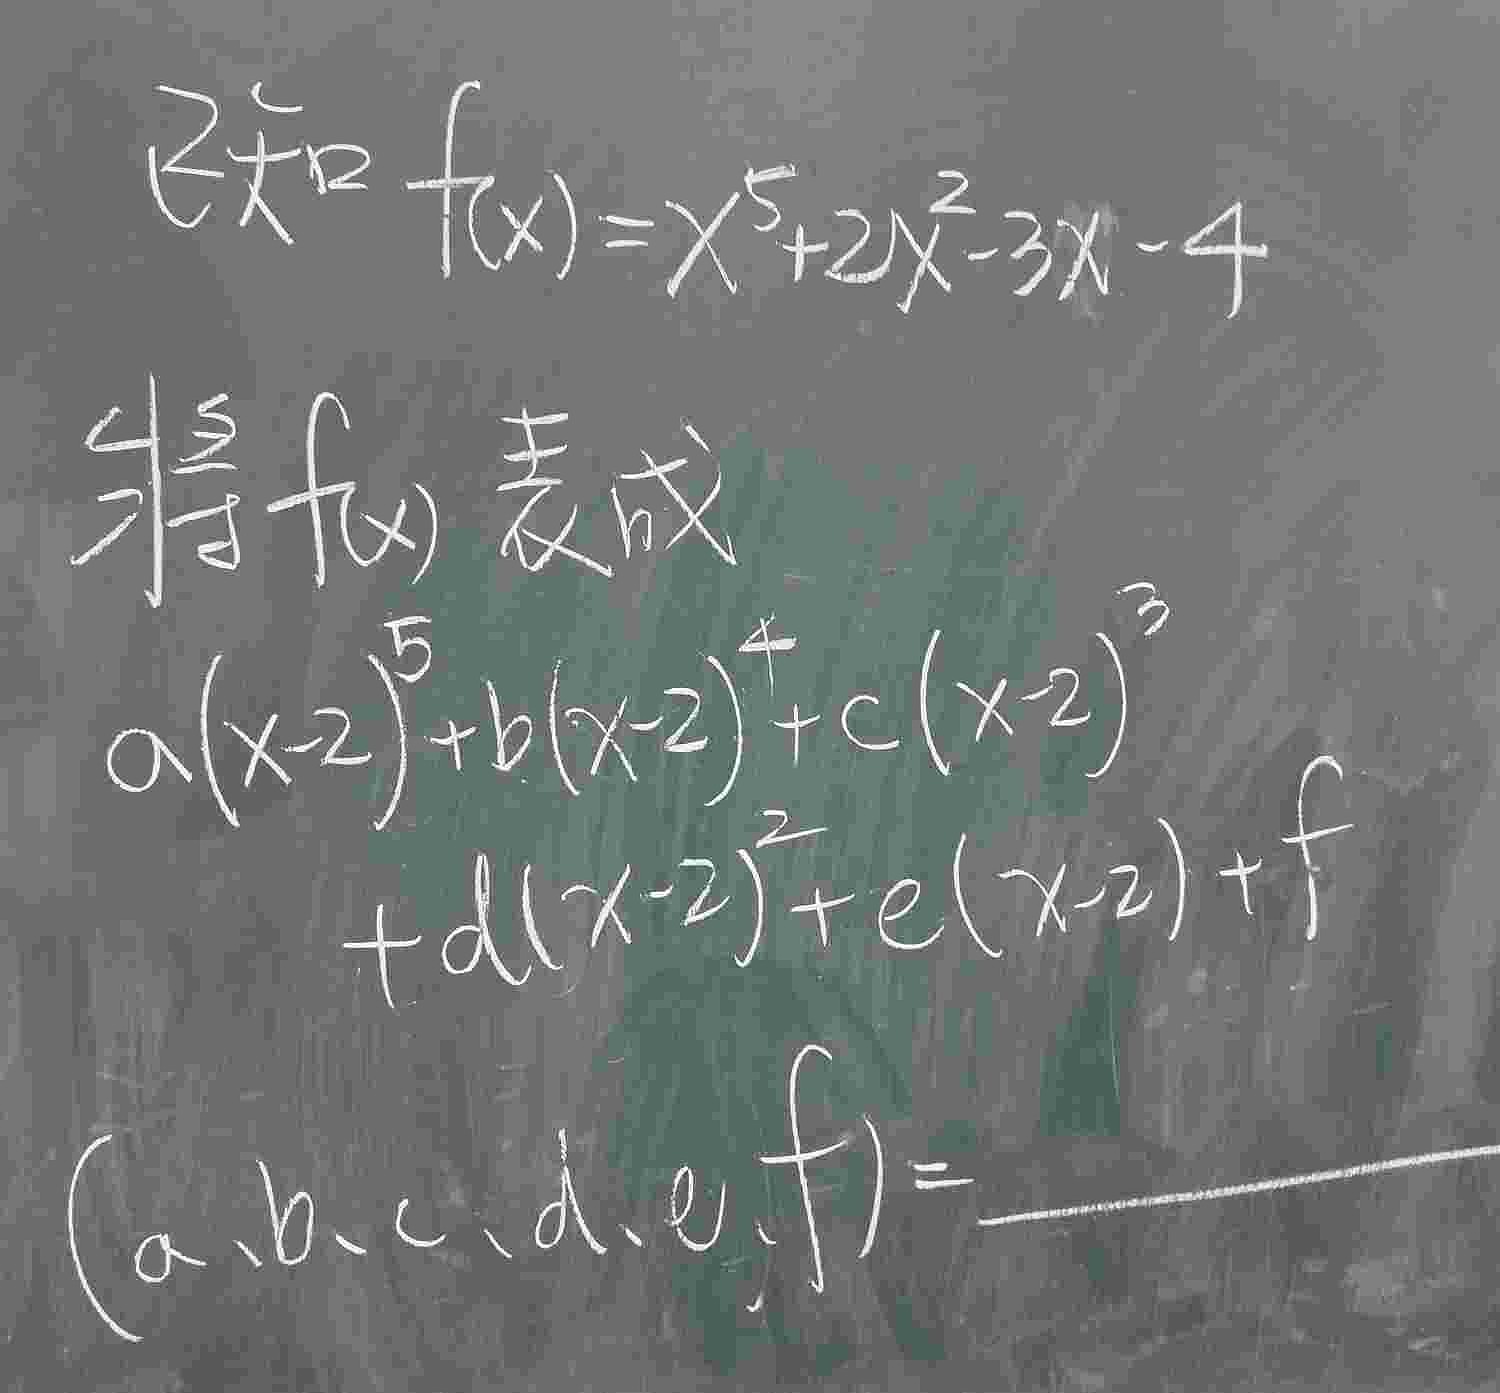 已知 f(x)=x⁵+2x²-3x-4
將 f(x) 表成
a(x-2)⁵+b(x-2)⁴+c(x-2)³
+d(x-2)²+e(x-2)+f
(a、b、c、d、e、f)=